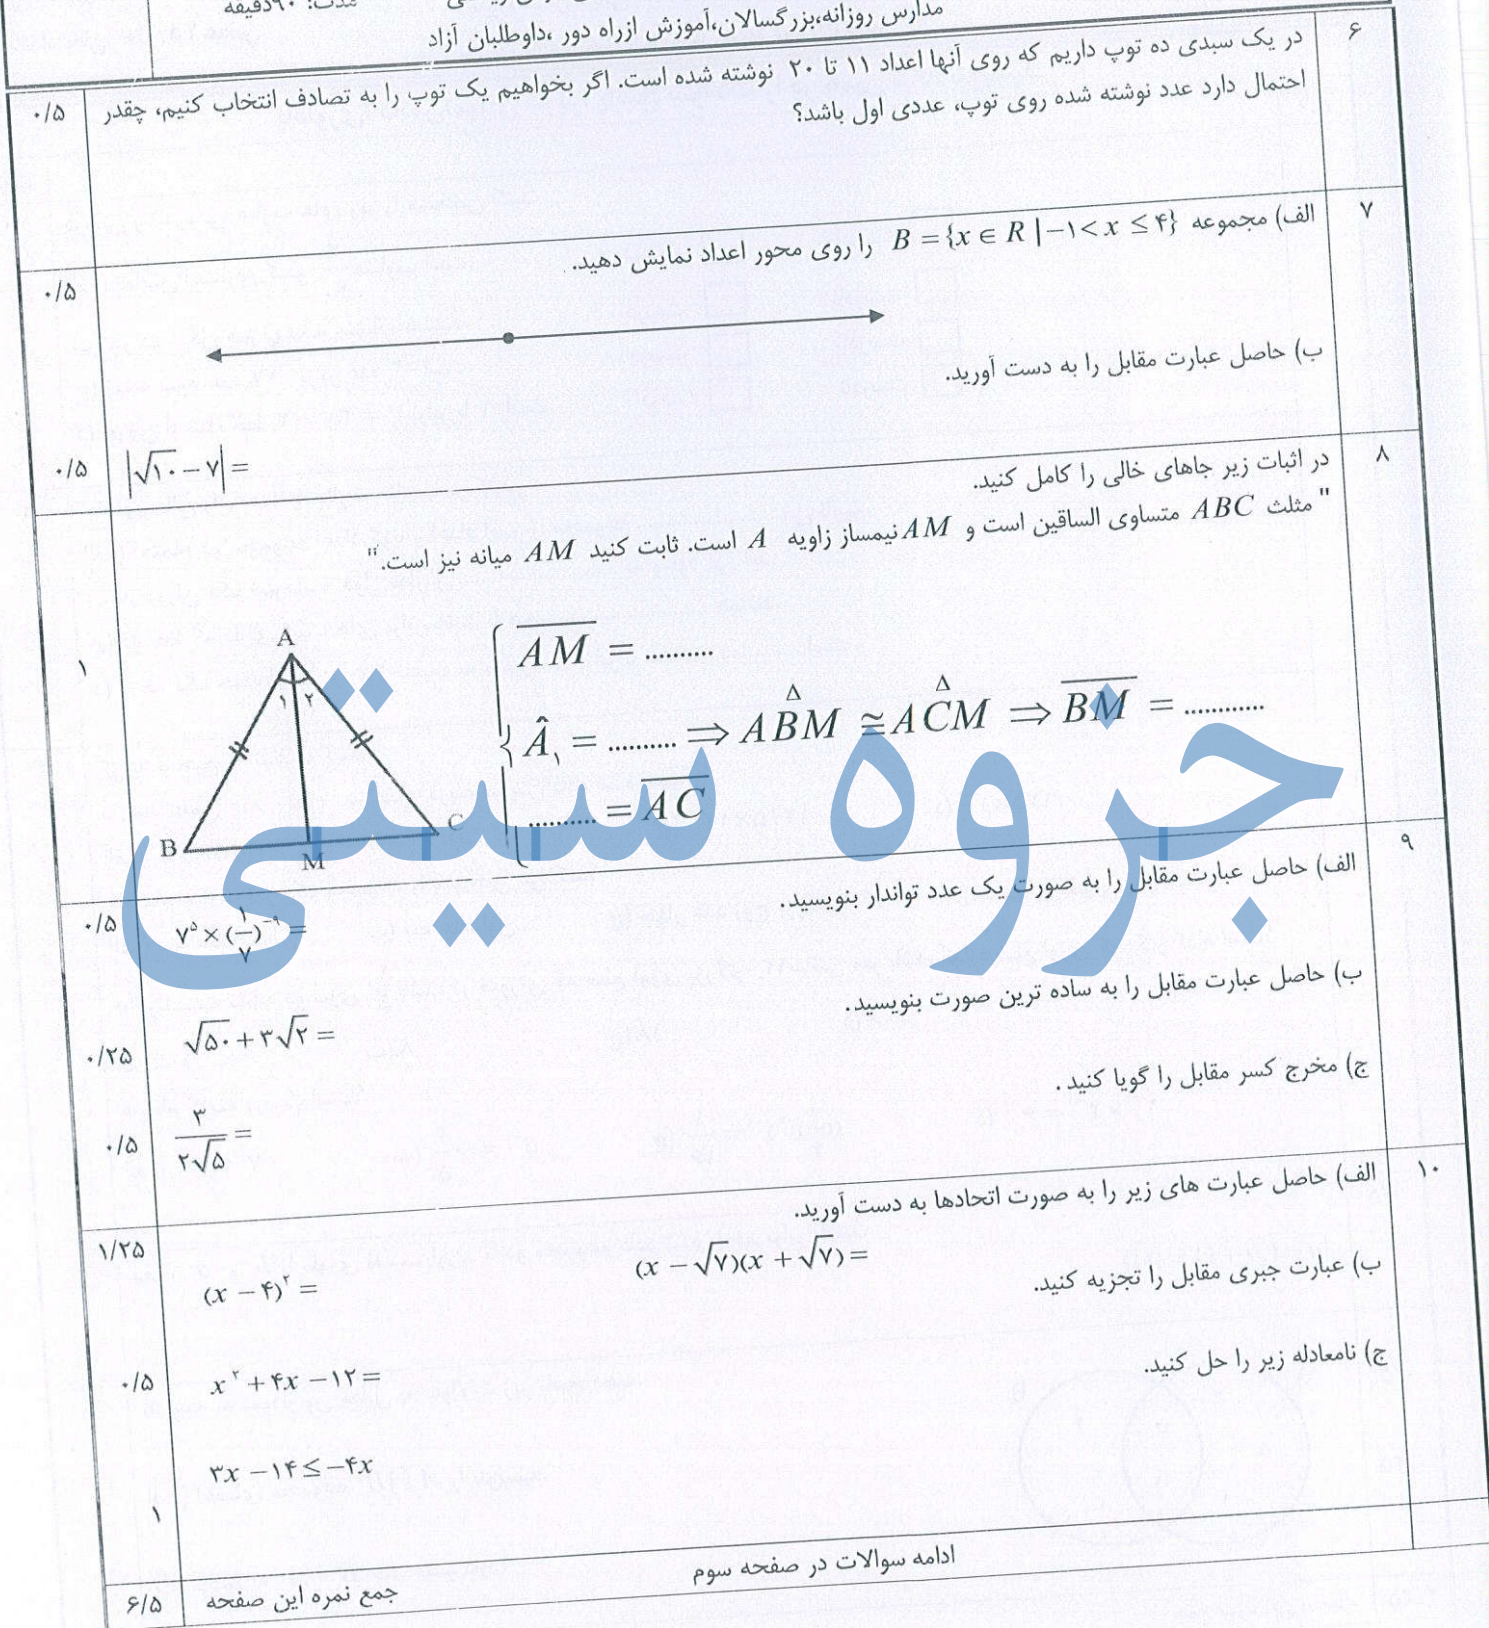 مدارس روزانه،بزرگسالان،آموزش ازراه دور ،داوطلبان آزاد
۶
در یک سبدی ده توپ داریم که روی آنها اعداد ۱۱ تا ۲۰ نوشته شده است. اگر بخواهیم یک توپ را به تصادف انتخاب کنیم، چقدر
۰/۵
احتمال دارد عدد نوشته شده روی توپ، عددی اول باشد؟
۷
الف) مجموعه B = {x ∈ R | −۱ < x ≤ ۴} را روی محور اعداد نمایش دهید.
۰/۵
ب) حاصل عبارت مقابل را به دست آورید.
|√۱۰ − ۷| =
۰/۵
۸
در اثبات زیر جاهای خالی را کامل کنید.
" مثلث ABC متساوی الساقین است و AM نیمساز زاویه A است. ثابت کنید AM میانه نیز است."
۱
A
۱ ۲
B
M
C
AM = ..........
Â۱ = .......... ⇒ ABM ≅ ACM ⇒ BM = ............
.......... = AC
جزوه سیتی
۹
الف) حاصل عبارت مقابل را به صورت یک عدد تواندار بنویسید.
۷^۵ × (۱/۷)^−۹ =
۰/۵
ب) حاصل عبارت مقابل را به ساده ترین صورت بنویسید.
√۵۰ + ۳√۲ =
۰/۲۵
ج) مخرج کسر مقابل را گویا کنید .
۳/۲√۵ =
۰/۵
۱۰
الف) حاصل عبارت های زیر را به صورت اتحادها به دست آورید.
۱/۲۵
(x − √۷)(x + √۷) =
(x − ۴)^۲ =
ب) عبارت جبری مقابل را تجزیه کنید.
x^۲ + ۴x − ۱۲ =
۰/۵
ج) نامعادله زیر را حل کنید.
۳x − ۱۴ ≤ −۴x
۱
ادامه سوالات در صفحه سوم
جمع نمره این صفحه
۶/۵